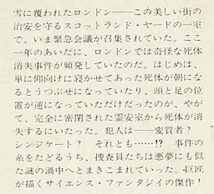 雪に覆われたロンドン──この美しい街の
治安を守るスコットランド・ヤードの一室
で、いま緊急会議が召集されていた。ここ
一年のあいだに、ロンドンでは奇怪な死体
消失事件が頻発していたのだ。はじめは、
単に仰向けに寝かせてあった死体が朝にな
るとうつぶせになっていたり、頭と足の位
置が逆になっていただけだったのが、やが
て、完全に密閉された霊安室から死体が消
失するにいたった。犯人は──変質者？
シンジケート？　それとも…⁉　事件の
糸をたどるうち、捜査員たちは悪夢にも似
た謎の渦中へとまきこまれていった。巨匠
が描くサイエンス・ファンタジイの傑作！